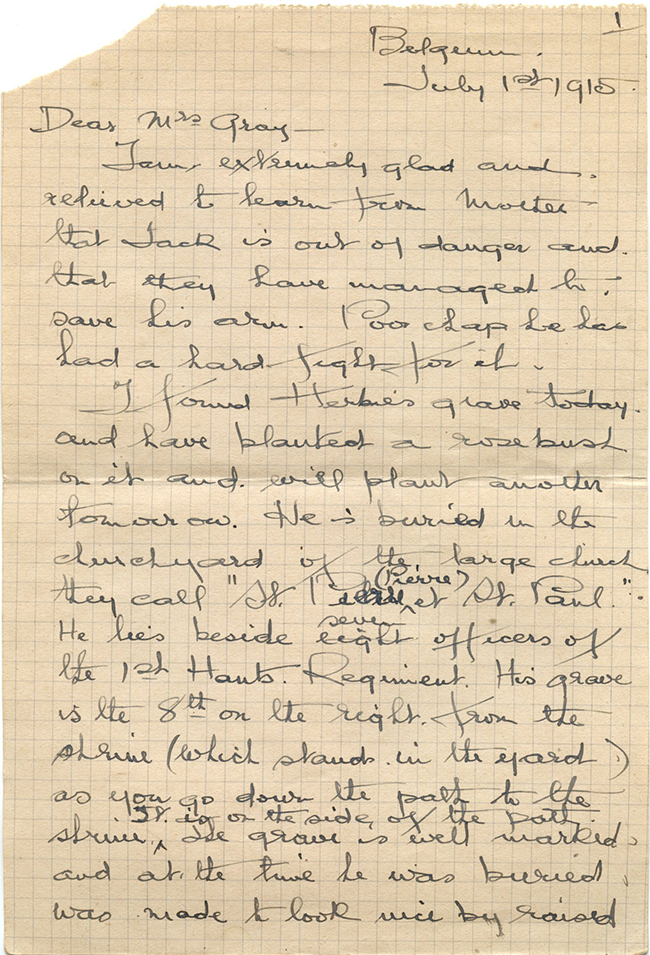 1
Belgium.
July 1st 1915.
Dear Mrs Gray—
I am extremely glad and
relieved to learn from Mother
that Jack is out of danger and
that they have managed to
save his arm. Poor chap he has
had a hard fight for it.
I found Herbie's grave today
and have planted a rosebush
on it and will plant another
tomorrow. He is buried in the
churchyard of the large church
they call "St. (Pierre) et St. Paul."
He lies beside seven officers of
the 1st Hants. Regiment. His grave
is the 8th on the right from the
shrine (which stands in the yard)
as you go down the path to the
shrine. It is on the side of the path.
The grave is well marked
and at the time he was buried
was made to look nice by raised